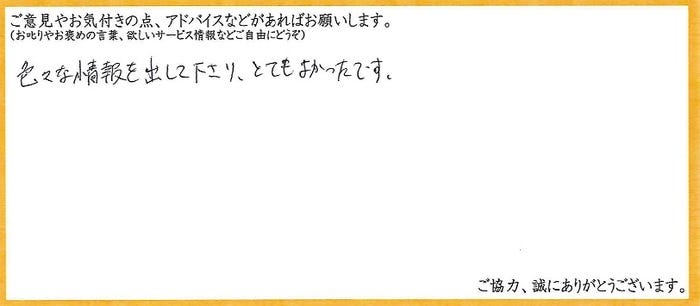 ご意見やお気付きの点、アドバイスなどがあればお願いします。
(お叱りやお褒めの言葉、欲しいサービス情報などご自由にどうぞ)
色々な情報を出して下さり、とてもよかったです。
ご協力、誠にありがとうございます。